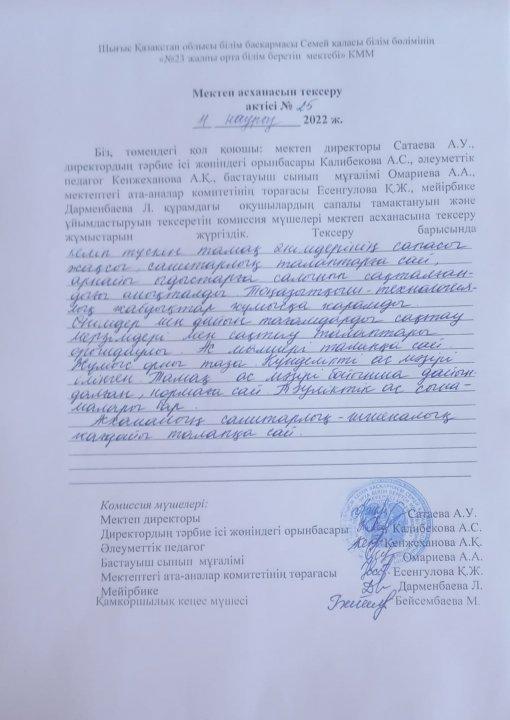 Шығыс Қазақстан облысы білім басқармасы Семей қаласы білім бөлімінің
«№23 жалпы орта білім беретін мектебі» КММ
Мектеп асханасын тексеру
актісі № 25
11 наурыз 2022 ж.
Біз, төмендегі қол қоюшы: мектеп директоры Сатаева А.У.,
директордың тәрбие ісі жөніндегі орынбасары Калибекова А.С., әлеуметтік
педагог Кенжеханова А.Қ., бастауыш сынып мұғалімі Омариева А.А.,
мектептегі ата-аналар комитетінің төрағасы Есенгулова Қ.Ж., мейірбике
Дарменбаева Л. құрамдағы оқушылардың сапалы тамақтануын және
ұйымдастыруын тексеретін комиссия мүшелері мектеп асханасына тексеру
жұмыстарын жүргіздік. Тексеру барысында
келіп түскен тамақ өнімдерінің сапасы
жақсы, санитарлық талаптарға сай,
арнайы ыдыстарға салынып сақталған-
дығы анықталды. Тоңазытқыш-технология-
лық жабдықтар жұмысқа жарамды.
Өнімдер мен дайын тағамдарды сақтау
мерзімдері мен сақтау талаптары
орындалған. Ас мәзірі талапқа сай.
Жұмыс орны таза. Күнделікті ас мәзірі
ілінген. Тамақ ас мәзірі бойынша дайын-
далған, нормаға сай. Тәуліктік ас сына-
малары бар.
Асхананың санитарлық-гигиеналық
жағдайы талапқа сай.
Комиссия мүшелері:
Мектеп директоры Сатаева А.У.
Директордың тәрбие ісі жөніндегі орынбасары Калибекова А.С.
Әлеуметтік педагог Кенжеханова А.Қ.
Бастауыш сынып мұғалімі Омариева А.А.
Мектептегі ата-аналар комитетінің төрағасы Есенгулова Қ.Ж.
Мейірбике Дарменбаева Л.
Қамқоршылық кеңес мүшесі Бейсембаева М.